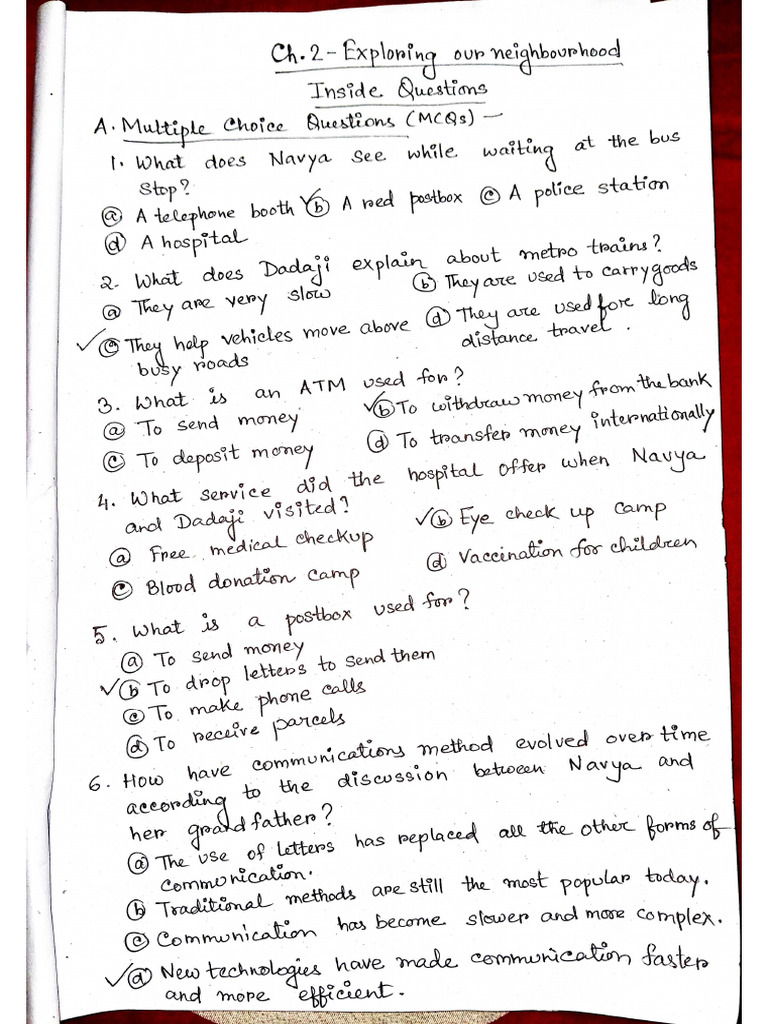 Ch.2 - Exploring our neighbourhood
Inside Questions
A. Multiple Choice Questions (MCQs) —
1. What does Navya see while waiting at the bus
stop?
ⓐ A telephone booth ✓ⓑ A red postbox ⓒ A police station
ⓓ A hospital
2. What does Dadaji explain about metro trains?
ⓐ They are very slow ⓑ They are used to carry goods
✓ⓒ They help vehicles move above ⓓ They are used fore long
busy roads distance travel.
3. What is an ATM used for?
ⓐ To send money ✓ⓑ To withdraw money from the bank
ⓒ To deposit money ⓓ To transfer money internationally
4. What service did the hospital offer when Navya
and Dadaji visited?
ⓐ Free medical checkup ✓ⓑ Eye check up camp
ⓒ Blood donation camp ⓓ Vaccination for children
5. What is a postbox used for?
ⓐ To send money
✓ⓑ To drop letters to send them
ⓒ To make phone calls
ⓓ To receive parcels
6. How have communications method evolved over time
according to the discussion between Navya and
her grandfather?
ⓐ The use of letters has replaced all the other forms of
communication.
ⓑ Traditional methods are still the most popular today.
ⓒ Communication has become slower and more complex.
✓ⓓ New technologies have made communication faster
and more efficient.